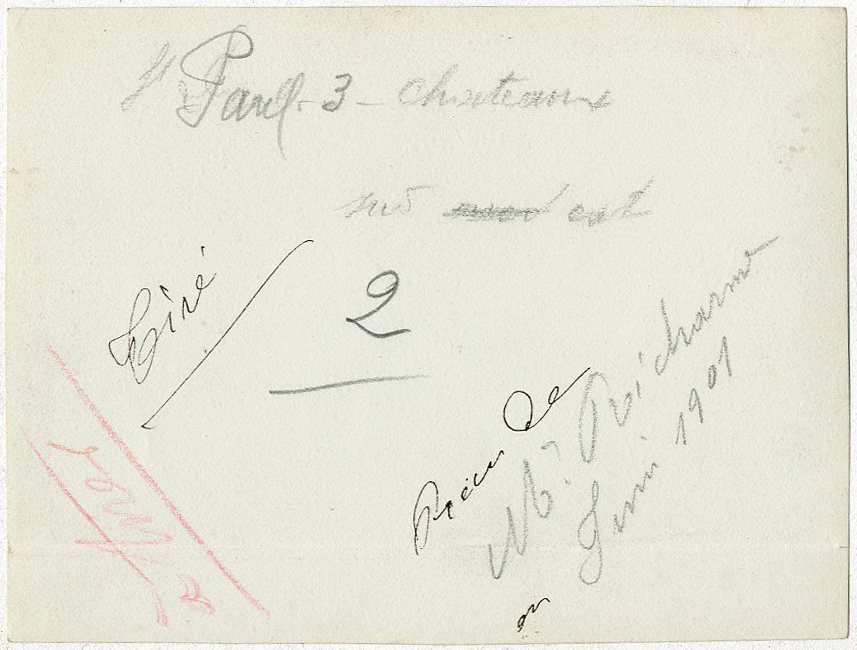 St Paul-3-Chateaux
sud est
Tiré
2
Reçu de
Mr Richarme
en Juin 1901